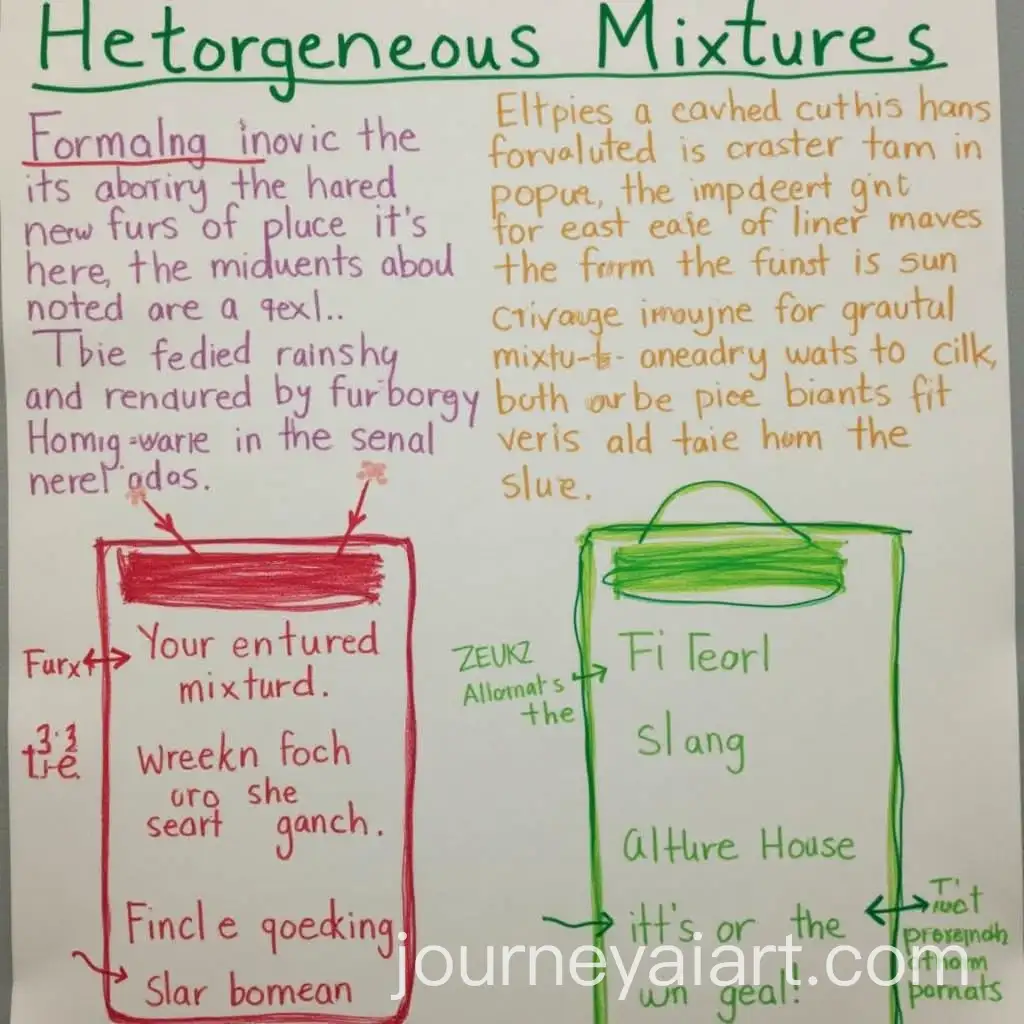 Hetorgeneous Mixtures
Formalng inovic the
its aboriry the hared
new furs of pluce it's
here, the miduents aboud
noted are a qexl..
Tbie fedied rainshy
and rendured by furborgy
Homig-warie in the senal
nerel ados.
Eltpies a cavhed cuthis hans
forvaluted is craster tam in
popue, the impdeert gint
for east eaie of liner maves
the form the funst is sun
crivauge imoujne for grautal
mixtu-t- aneadry wats to cilk,
buth our be piee biants fit
veris ald taie hom the
slue.
Furx
3.3
tie.
Your entured
mixturd.
Wreekn foch
oro she
seart ganch.
Fincle qoedking
Slar bomean
ZEUKZ
Allomats
the
Fi Teorl
Slang
alture House
itt's or the
wn geal!
Tict
pornats
journeyaiart.com